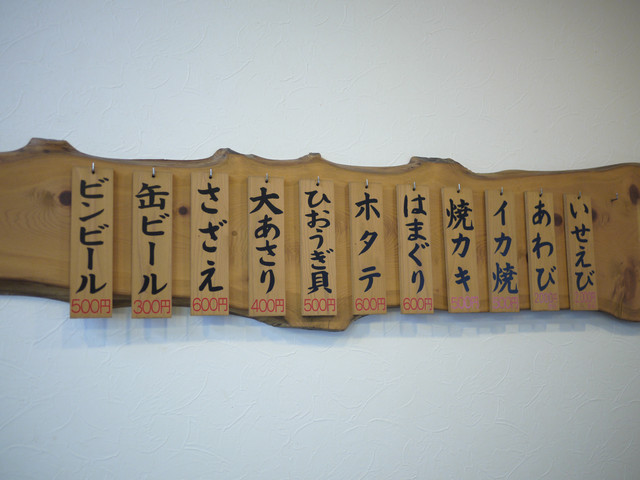 いせえび
あわび
イカ焼
焼カキ
500円
はまぐり
600円
ホタテ
600円
ひおうぎ貝
500円
大あさり
400円
さざえ
600円
缶ビール
300円
ビンビール
500円